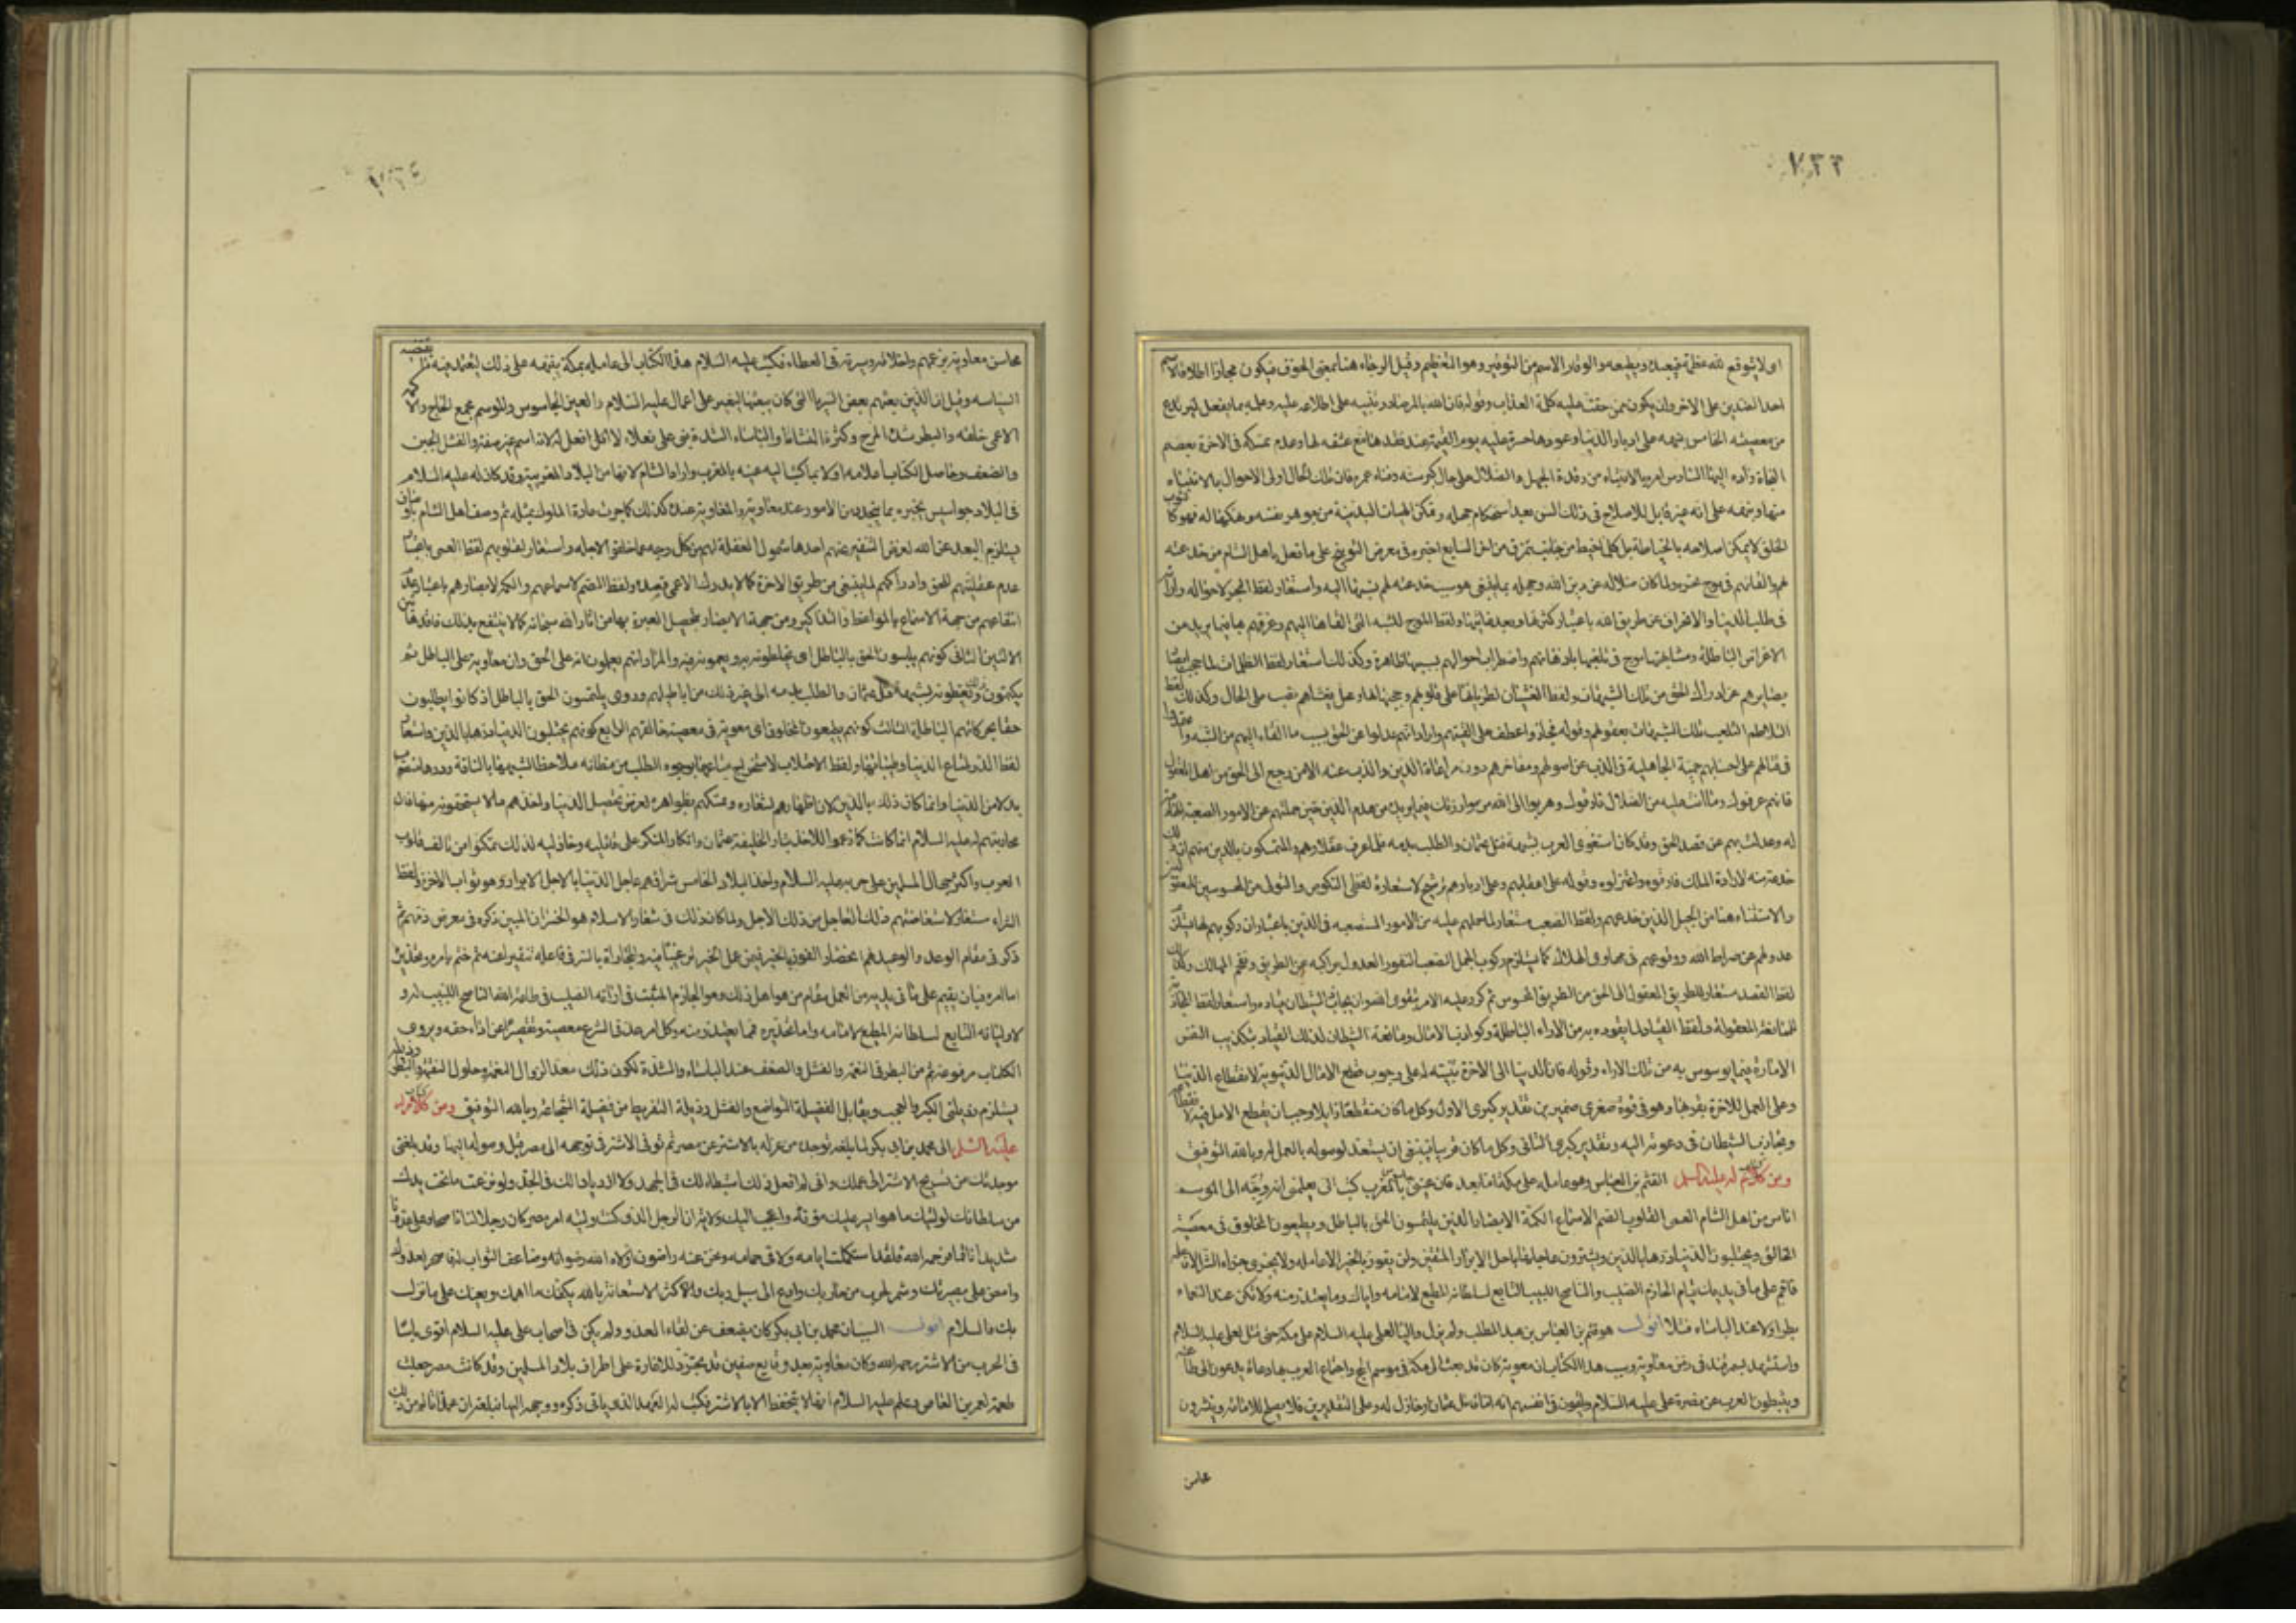 ٧٣٣
او لا يتوقع لله عظمة فيعبده ويطيعه والوقار الاسم من التوقير وهو التعظيم وقيل الرجاء هنا بمعنى الخوف فيكون مجازا اطلاقا لاسم
احد الضدين على الاخر وان يكون ممن حقت عليه كلمة العذاب وقوله فان الله بالمرصاد وتنبيه على اطلاعه عليه وعلمه بما يفعل ليرتدع
من معصيته الخامس نبهه على ادبار الدنيا وعودها حسرة عليه يوم القيمة عند فقدها مع عشقه لها وعدم تمسكه في الاخرة بعصم
النجاة السادس امره بالانتباه من رقدة الجهل والضلال على حال كبر سنه وفناء عمره فان تلك الحال اولى الاحوال بالانتباه
منها ونبهه على انه غير قابل للاصلاح في ذلك السن بعد استحكام جهله وتمكن الهيات البدنية من جوهر نفسه ونهكها له فهو كالثوب
الخلق لا يمكن اصلاحه بالخياطة بل كلما خيط من جانب تمزق من اخر السابع اخبره في معرض التوبيخ على ما فعل باهل الشام من خدعته
لهم والقائهم في موج بحره ولما كان ضلاله عن دين الله وجهله بما ينبغي هو سبب خدعته لهم نسبها اليه واستعار لفظ البحر لاحواله واراءه
في طلب الدنيا والانحراف عن طريق الله باعتبار كثرتها وبعد غايتها ولفظ الموج للشبه التي القاها اليهم وغرقهم بها فيما يريد من
الاغراض الباطلة ومشابهتها موج في تلعبها باذهانهم واضطراب احوالهم بسببها ظاهرة وكذلك استعار لفظ الظلمات لما حجب ابصار
بصايرهم عن ادراك الحق من تلك الشبهات ولفظ الغشيان لطريانها على قلوبهم وحجبها لها ومحل يغشاهم نصب على الحال وكذلك لفظ
التلاطم لتلعب تلك الشبهات بعقولهم وقوله فجازوا عطف على القيتهم واراد انهم عدلوا عن الحق بسبب ما القاه اليهم من الشبه واعتمدوا
في قتالهم على احسابهم حمية الجاهلية في الذب عن اصولهم ومفاخرهم دون مراعاة الدين والذب عنه الا من رجع الى الحق من اهل العقول
فانهم عرفوك وما انت عليه من الضلال فارقوك وهربوا الى الله من موازرتك فيما تريد من هدم الدين حين حملتهم على الامور الصعبة الهادمة
له وعدلت بهم عن قصد الحق وقد كان استغوى العرب بشبهة قتل عثمان والطلب بدمه فلما عرف عقلاؤهم والمتمسكون بالدين منهم ان ذلك
خدعة منه لارادة الملك فارقوه واعتزلوه وقوله على اعقابهم وعلى ادبارهم ترشيح لاستعارة لفظي النكوص والتولي من المحسوسين للمعقولين
والاستثناء هنا من الجيل الذين خدعهم ولفظ الصعب مستعار لما حملهم عليه من الامور المستصعبة في الدين باعتبار ان ركوبهم لها يستلزم
عدولهم عن صراط الله ووقوعهم في مهاوي الهلاك كما يستلزم ركوب الجمل الصعب النفور العدول براكبه عن الطريق وتقحم المهالك وكذلك
لفظ القصد مستعار للطريق المعقول الى الحق من الطريق المحسوس ثم كرر عليه الامر بتقوى الله وان يجاذب الشيطان قياده واستعار لفظ المجاذبة
للممانعة المعقولة ولفظ القياد لما يقوده به من الاراء الباطلة وكواذب الامال وممانعة الشيطان لذلك القياد بتكذيب النفس
الامارة فيما يوسوس به من تلك الاراء وقوله فان الدنيا الى الاخرة تنبيه له على وجوب قطع الامال الدنيوية لانقطاع الدنيا
وعلى العمل للاخرة بقربها وهو في قوة صغرى ضمير من تقدير كبرى الاول وكل ما كان منقطعا زايلا وجب ان يقطع الامل فيه لانقطاعه
ويجاذب الشيطان في دعوته اليه وتقدير كبرى الثاني وكل ما كان قريبا فينبغي ان يستعد لوصوله بالعمل له وبالله التوفيق
ومن كتاب له عليه السلم الى قثم بن العباس وهو عامله على مكة اما بعد فان عيني بالمغرب كتب الي يعلمني انه وجه الى الموسم
اناس من اهل الشام العمى القلوب الصم الاسماع الكمه الابصار الذين يلتمسون الحق بالباطل ويطيعون المخلوق في معصية
الخالق ويحتلبون الدنيا درها بالدين ويشترون عاجلها باجل الابرار المتقين ولن يفوز بالخير الا عامله ولا يجزى جزاء الشر الا فاعله
فاقم على ما في يديك قيام الحازم الصليب والناصح اللبيب التابع لسلطانه المطيع لامامه واياك وما يعتذر منه ولا تكن عند النعماء
بطرا ولا عند الباساء فشلا اقول هو قثم بن العباس بن عبد المطلب ولم يزل واليا لعلي عليه السلام على مكة حتى قتل علي عليه السلام
واستشهد بسمرقند في زمن معاوية وسبب هذا الكتاب ان معوية كان قد بعث الى مكة في موسم الحج واجتماع العرب بها دعاة يدعون الى طاعته
ويثبطون العرب عن نصرة علي عليه السلام ويلقون في انفسهم انه اما قاتل عثمان او خاذل له وعلى التقديرين فلا يصلح للامامة وينشرون
محاسن
٧٣٤
محاسن معاوية بزعمهم واخلاقه وسيرته في العطاء فكتب عليه السلام هذا الكتاب الى عامله بمكة ينبهه على ذلك ليعتمد فيه بما تقتضيه
السياسه وقيل ان الذين بعثهم بعض السرايا التي كان يبعثها ليغير على اعمال علي عليه السلام والعين الجاسوس والموسم مجمع الحاج والاكمه
الاعمى خلقه والبطر شدة المرح وكثرة النشاط والباساء الشدة فعلاء لا افعل له لانه اسم غير صفة والفشل الجبن
والضعف وحاصل الكتاب اعلامه اولا بما كتب اليه عينه بالمغرب واراد الشام لانها من البلاد المغربية وقد كان له عليه السلام
في البلاد جواسيس يخبره بما يتجدد من الامور عند معاوية ولمعاوية عنده كذلك كما جرت عادة الملوك بمثله ثم وصف اهل الشام باوصاف
يستلزم البعد عن الله لغرض التنفير عنهم احدها شمول الغفلة لهم من كل وجه عما خلقوا لاجله واستعار لقلوبهم لفظ العمى باعتبار
عدم عقليتهم للحق وادراكهم لما ينبغي من طريق الاخرة كما لا يدرك الاعمى قصده ولفظ الصم لاسماعهم والكمه لابصارهم باعتبار عدم
انتفاعهم من جهة الاسماع بالمواعظ والتذاكير ومن جهة الابصار بتحصيل العبرة بها من اثار الله سبحانه كما لا ينتفع بذلك فاقد هاتين
الالتين الثاني كونهم يلبسون الحق بالباطل اي يخلطونه به ويعمونه فيه والمراد انهم يعلمون انه على الحق وان معاوية على الباطل ثم
يكتمون ذلك ويغطونه بشبهة قتل عثمان والطلب بدمه الى غير ذلك من اباطيلهم وروي يلتمسون الحق بالباطل اذ كانوا يطلبون
حقا بحركاتهم الباطلة الثالث كونهم يطيعون المخلوق اي معوية في معصية خالقهم الرابع كونهم يحتلبون الدنيا درها بالدين واستعار
لفظ الدر لمتاع الدنيا وطيباتها ولفظ الاحتلاب لاستخراج متاعها بوجوه الطلب من مظانه ملاحظا لشبهها بالناقة ودرها منصوب
بدلا من الدنيا وانما كان ذلك بالدين لان اظهارهم لشعاره وتمسكهم بظواهره لغرض تحصيل الدنيا واخذهم ما لا يستحقونه منها فان
محاربتهم له عليه السلام انما كانت كما زعموا للاخذ بثار الخليفة عثمان وانكار المنكر على قاتليه وخاذليه لذلك تمكنوا من تالف قلوب
العرب واكثر جهال المسلمين على حربه عليه السلام واخذ البلاد الخامس شراؤهم عاجل الدنيا باجل الابرار وهو ثواب الاخرة ولفظ
الشراء مستعار لاستعاضتهم ذلك العاجل من ذلك الاجل ولما كان ذلك في شعار الاسلام هو الخسران المبين ذكره في معرض ذمهم ثم
ذكر في مقام الوعد والوعيد لهم انحصار الفوز بالخير فيمن عمل الخير ترغيبا فيه والمجازاة بالشر في فاعله تنفيرا عنه ثم ختم بامره وتحذيره
اما امره فبان يقيم على ما في يديه من العمل مقام من هو اهل ذلك وهو الحازم المتثبت في ارائه الصليب في طاعة الله الناصح اللبيب له و
لاوليائه التابع لسلطانه المطيع لامامه واما تحذيره فمما يعتذر منه وكل امر عد في الشرع معصية وتقصيرا عن اداء حقه ويروى
الكتاب مرفوعة ثم من البطر في النعم والفشل والضعف عند الباساء والشدة لكون ذلك معدا لزوال النعمة وحلول النقمة والبطر رذيلة
يستلزم رذيلتي الكبر والعجب ويقابل الفضيلة التواضع والفشل رذيلة التفريط من فضيلة الشجاعة وبالله التوفيق ومن كتاب له
عليه السلم الى محمد بن ابي بكر لما بلغه توجده من عزله بالاشتر عن مصر ثم توفي الاشتر في توجهه الى مصر قبل وصوله اليها وقد بلغني
موجدتك من تسريح الاشتر الى عملك واني لم افعل ذلك استبطاء لك في الجهد ولا ازديادا لك في الجد ولو نزعت ما تحت يدك
من سلطانك لوليتك ما هو ايسر عليك مؤنة واعجب اليك ولاية ان الرجل الذي كنت وليته امر مصر كان رجلا لنا ناصحا وعلى عدونا
شديدا ناقما فرحمه الله فلقد استكمل ايامه ولاقى حمامه ونحن عنه راضون اولاه الله رضوانه وضاعف الثواب له فاصحر لعدوك
وامض على بصيرتك وشمر لحرب من حاربك وادع الى سبيل ربك واكثر الاستعانة بالله يكفك ما اهمك ويعينك على ما نزل
بك والسلام اقول السبب ان محمد بن ابي بكر كان يضعف عن لقاء العدو ولم يكن في اصحاب علي عليه السلام اقوى باسا
في الحرب من الاشتر رحمه الله وكان معاوية بعد وقايع صفين قد تجرد للاغارة على اطراف بلاد المسلمين وقد كانت مصر جعلت
طعمة لعمرو بن العاص وعلم عليه السلام انها لا يتحفظ الا بالاشتر فكتب له العهد الذي ياتي ذكره ووجهه اليها فبلغه ان محمدا تالم من ذلك